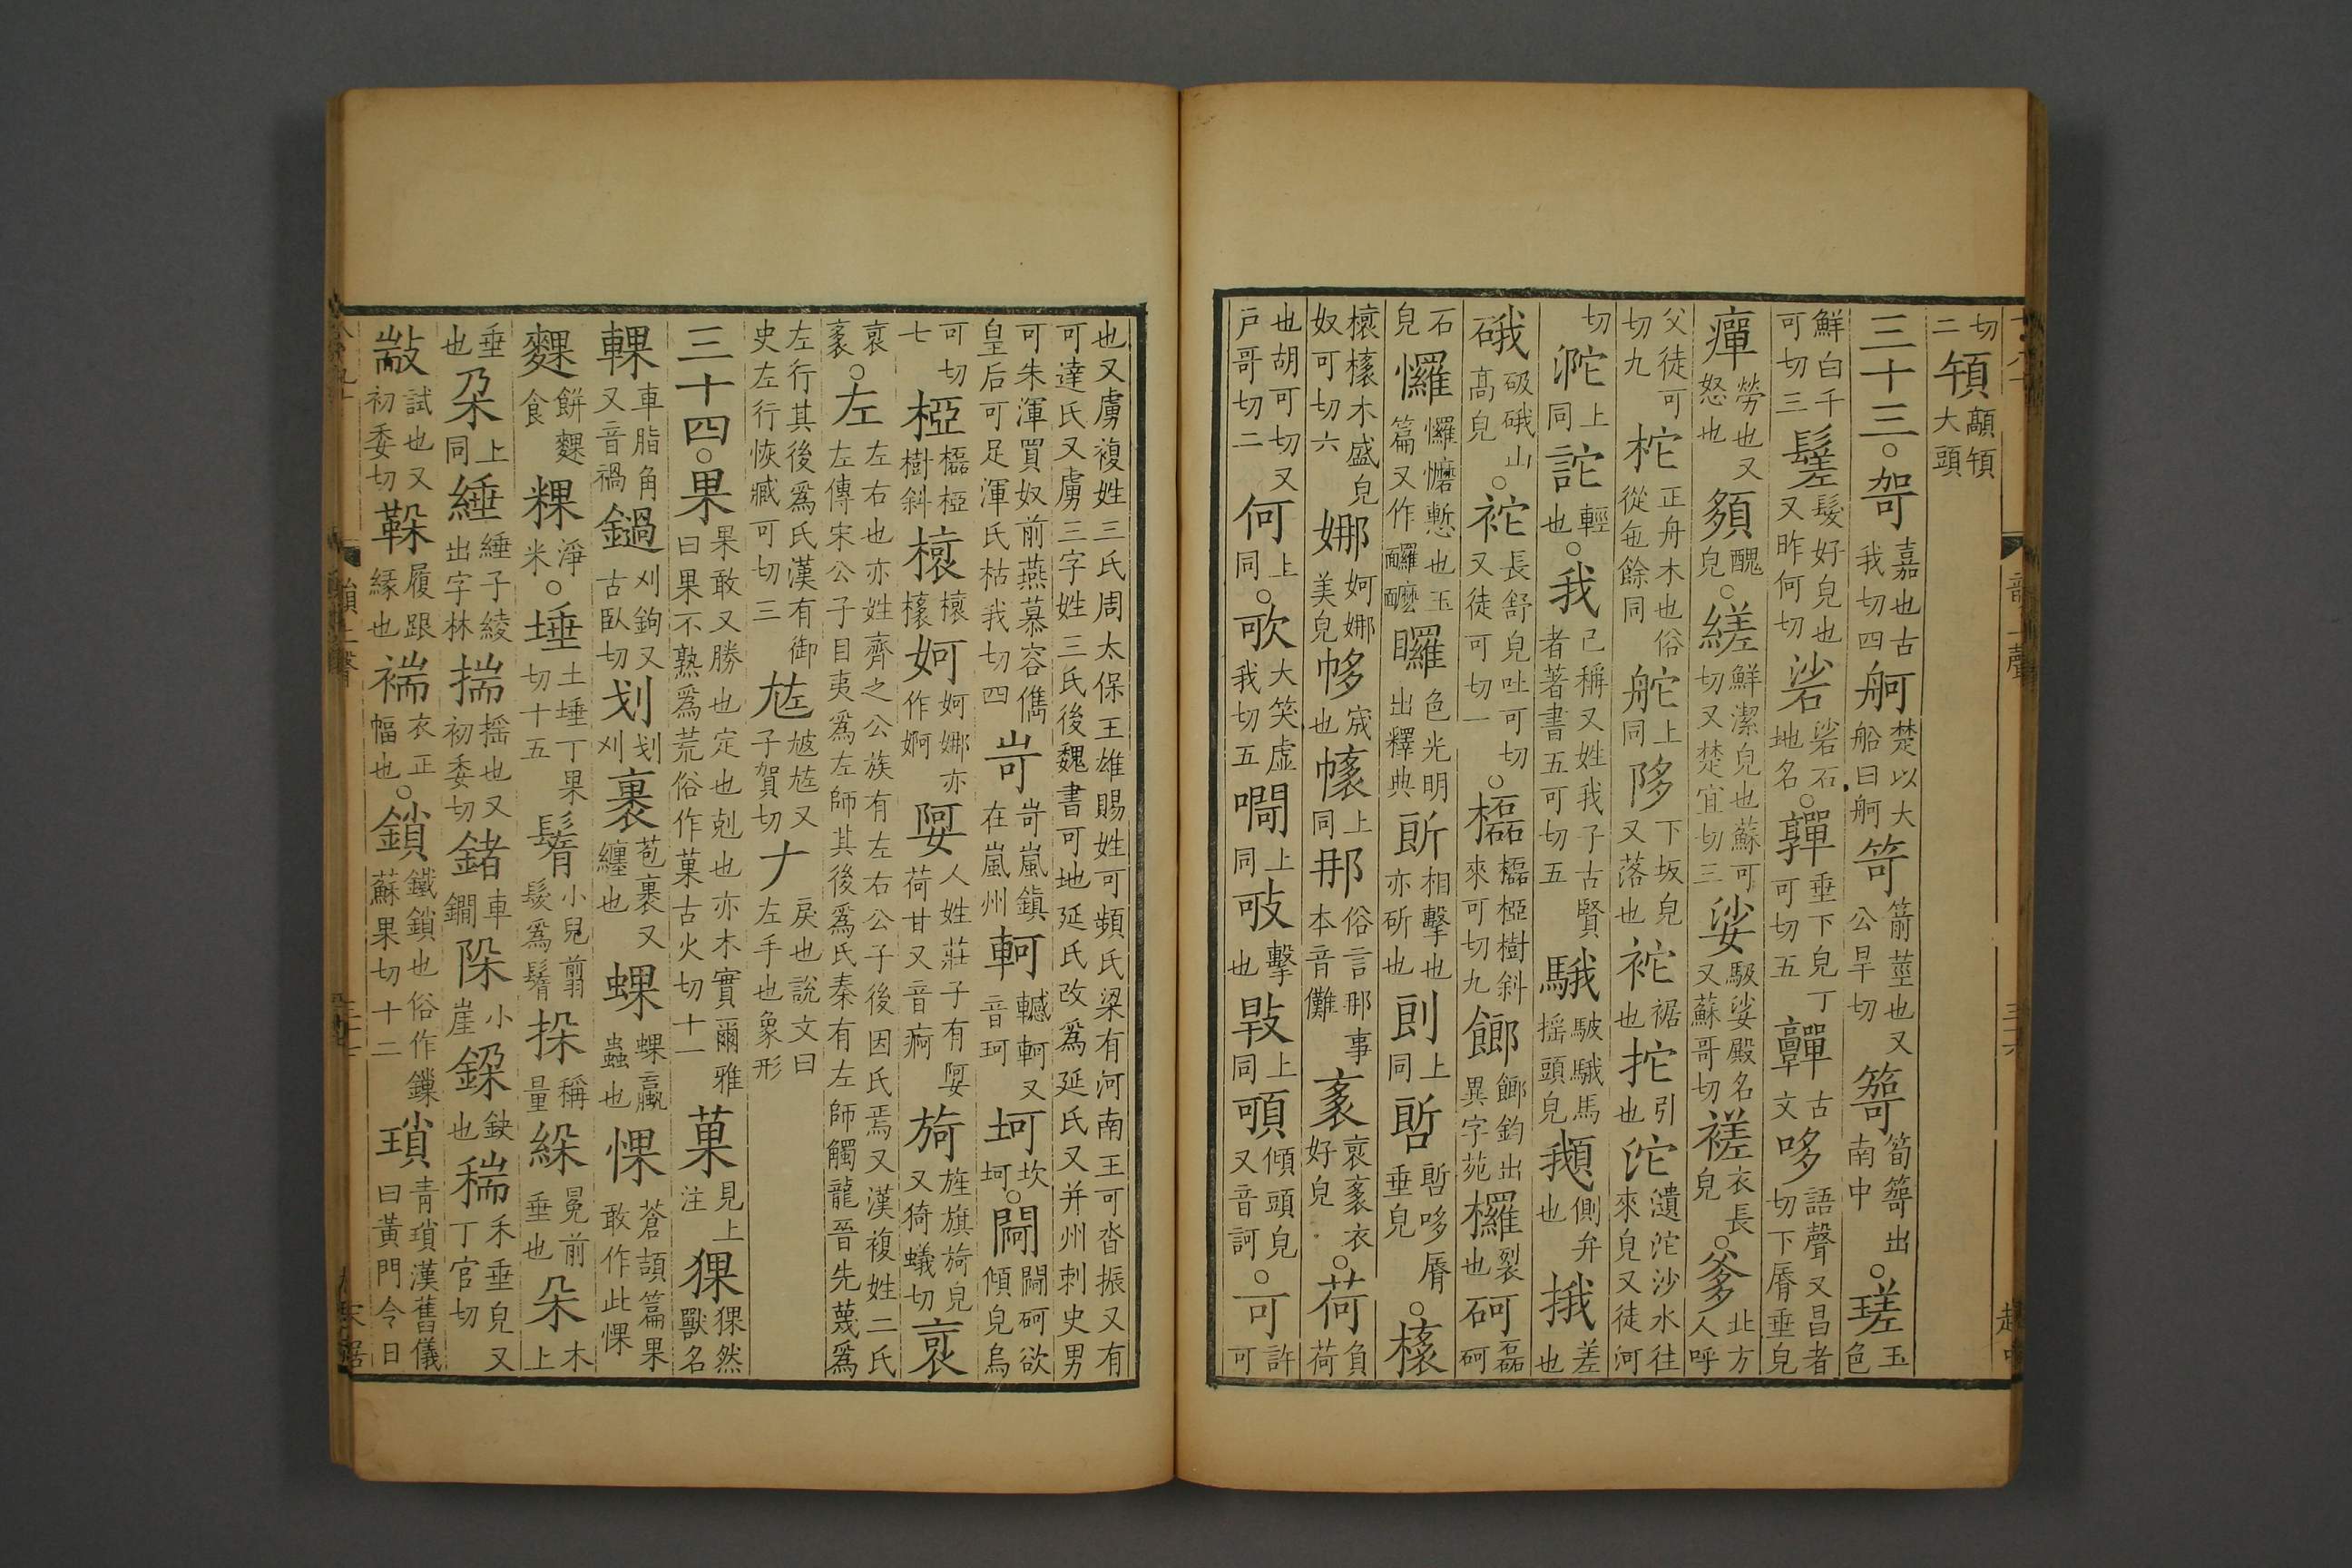 切二䪴顢䪴大頭
三十三。哿嘉也古我切四舸楚以大船曰舸笴箭莖也又公旱切䈊筍䈊出南中。瑳玉色
鮮白千可切三髊髮好皃也又昨何切硰硰石地名。嚲垂下皃丁可切五嚲古文哆語聲又昌者切下脣垂皃
癉勞也又怒也㖼醜皃。縒鮮潔皃也蘇可切又楚宜切三娑馺娑殿名又蘇哥切褨衣長皃。爹北方人呼
父徒可切九柁正舟木也俗從㐌餘同舵上同陊下坂皃又落也袉裾也拕引也沱澢沱沙水往來皃又徒河
切沱上同詑輕也。我己稱又姓我子古賢者著書五可切五騀駊騀馬搖頭皃䫘側弁也捰差也
硪砐硪山高皃。袉長舒皃吐可切又徒可切一。橠橠椏樹斜來可切九𨞪𨞪鈞出異字苑欏裂也砢磊砢
石皃㦬㦬懡慙也玉篇又作䆉䆉曪色光明出釋典𣂈相擊也亦斫也㓢上同㖇㖇哆脣垂皃。橠
榱橠木盛皃奴可切六娜㛂娜美皃㡅㡅也㡅上同𨙻俗言𨙻事本音儺袲㫊袲衣好皃。荷負荷
也胡可切又戶哥切二何上同。歌大笑虛我切五㗿上同㱒擊也㪃上同䪴傾頭皃又音訶。可許可
也又虜複姓三氏周太保王雄賜姓可頻氏梁有河南王可沓振又有
可達氏又虜三字姓三氏後魏書可地延氏改爲延氏又并州刺史男
可朱渾買奴前燕慕容儁皇后可足渾氏枯我切四岢岢嵐鎮在嵐州軻轗軻又音珂坷坎坷。閜閜砢欲傾皃烏
可切七椏橠椏樹斜榱榱橠㛂㛂娜亦作婀䋪人姓莊子有䋪荷甘又音痾旑旌旗旑皃又猗蟻切㫊
㫊袲。左左右也亦姓齊之公族有左右公子後因氏焉又漢複姓二氏左傳宋公子目夷爲左師其後爲氏秦有左師觸龍晉先蔑爲
左行其後爲氏漢有御史左行恢臧可切三㝾㝿㝾又子賀切𠂇戾也說文曰左手也象形
三十四。果果敢又勝也定也剋也亦木實爾雅曰果不熟爲荒俗作菓古火切十一菓見上注猓猓然獸名
輠車脂角又音禍鍋刈鉤又古臥切划划刈裹苞裹又纏也蜾蜾蠃蟲也惈蒼頡篇果敢作此惈
䴹餠䴹食粿淨米。埵土埵丁果切十五鬌小兒翦髮爲鬌挆稱量也綵冕前垂也朵木上
垂也朶上同綞綞子綾出字林揣搖也又初委切鍺車鐧陊小崖錁鈌也稴禾垂皃又丁官切
㪜試也又初委切䩣履跟緣也褍衣正幅也。鎖鐵鎖也俗作鏁蘇果切十二瑣青瑣漢舊儀曰黃門令日